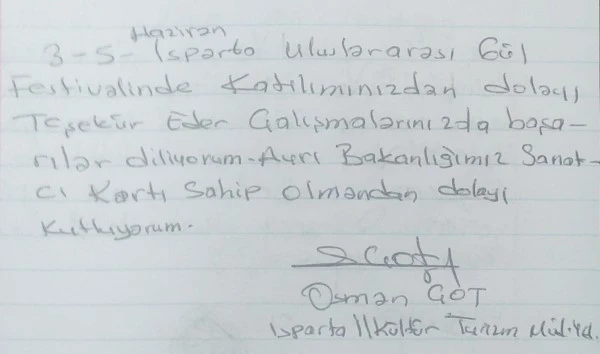 Haziran
3-5- Isparta Uluslararası Gül
Festivalinde Katılımınızdan dolayı
Teşekür Eder Çalışmalarınızda başa-
rılar diliyorum. Ayrı Bakanlığımız Sanat-
cı Kartı Sahip Olmandan dolayı
Kutluyorum.
Osman GÖT
Isparta İl Kültür Turizm Müd. Yd.